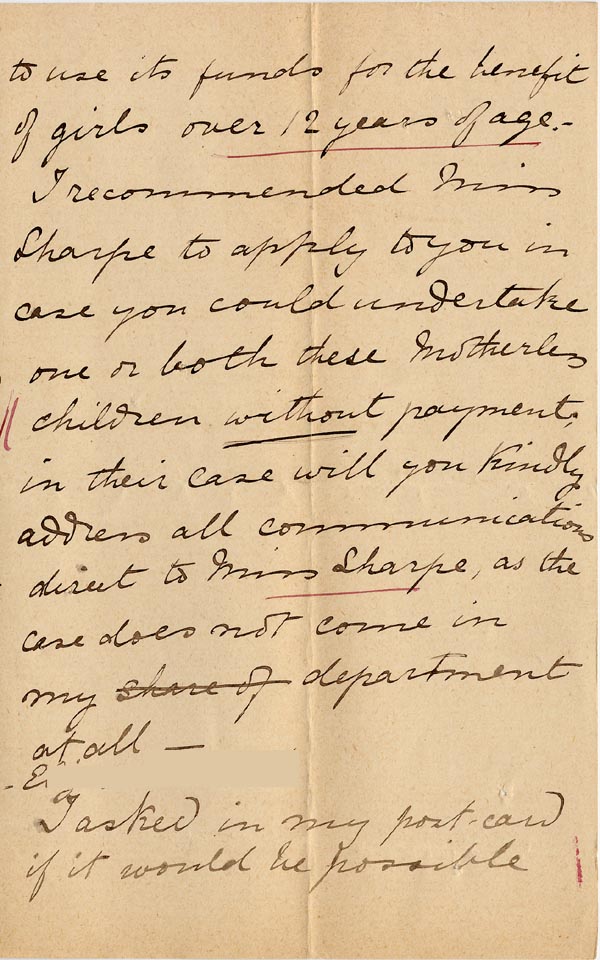 to use its funds for the benefit
of girls over 12 years of age.-
I recommended Miss
Sharpe to apply to you in
case you could undertake
one or both these Motherless
children without payment;
in their case will you kindly
address all communications
direct to Miss Sharpe, as the
case does not come in
my share of department
at all —
I asked in my post-card
if it would be possible